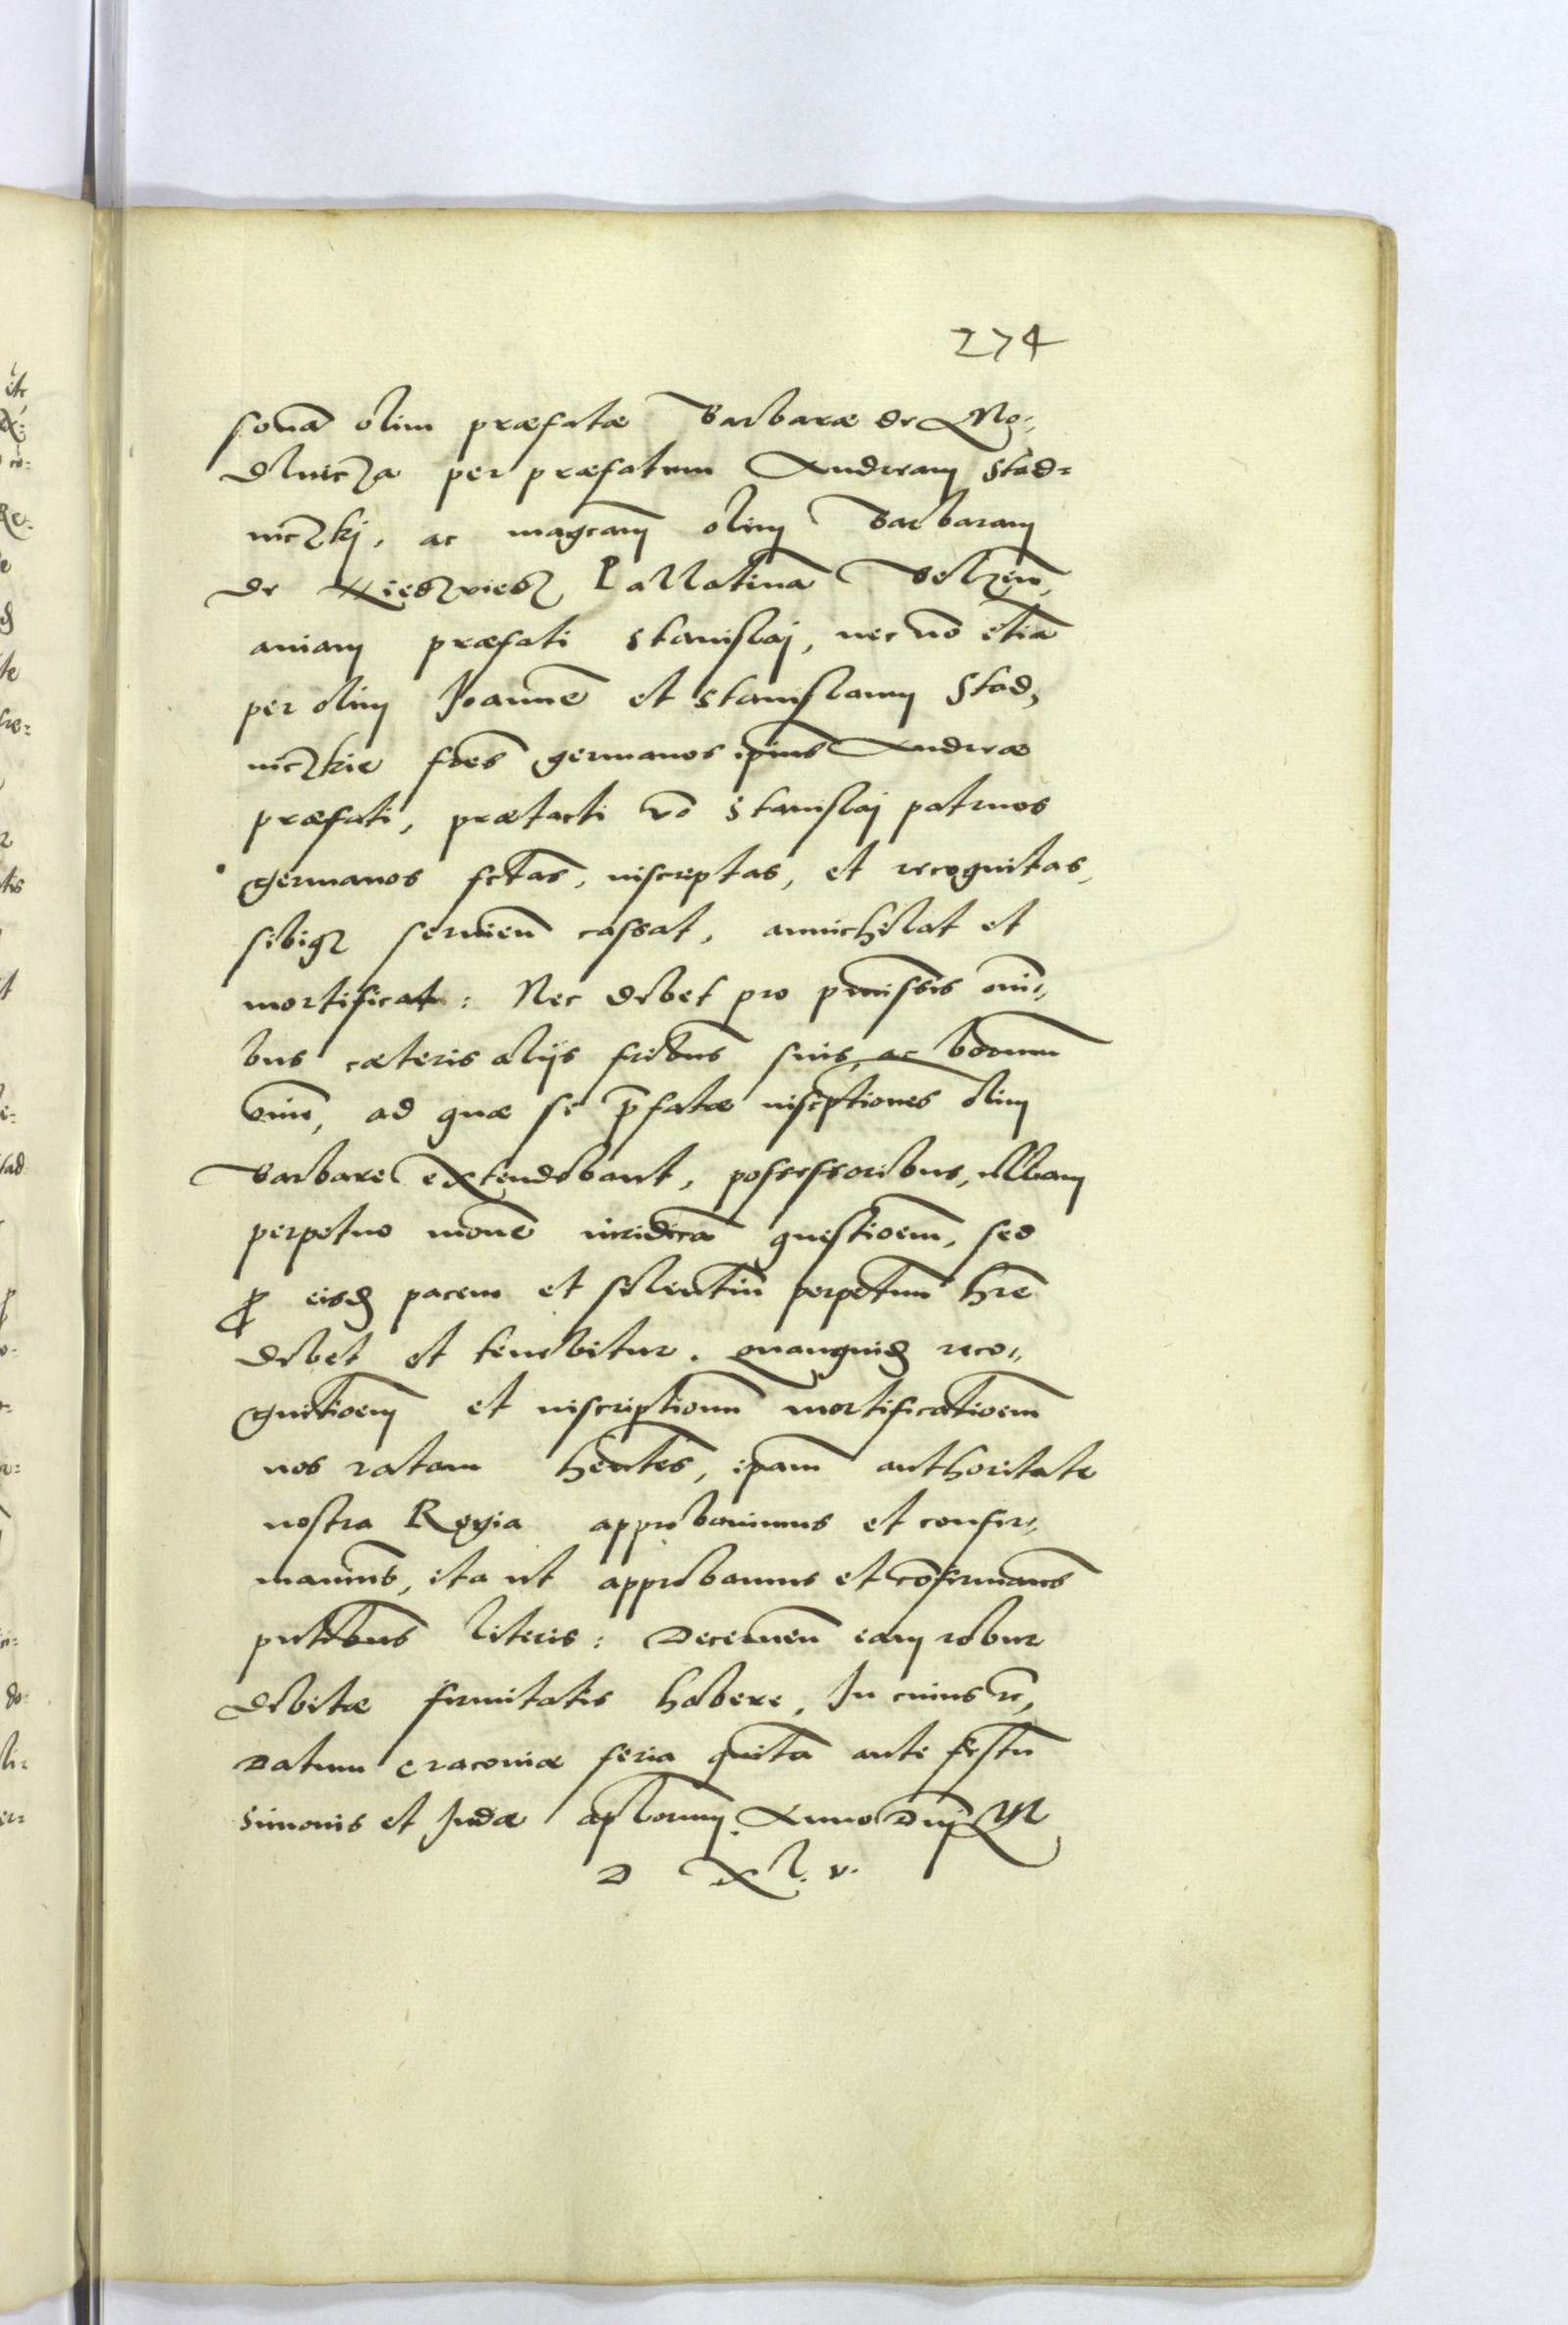 274
sonã olim præfatæ Barbaræ de Mo-
dlnicza per præfatum Andream Stad-
niczkj, ac magcam olim Barbaram
de Xiesz Pallatinã Belzeñ,
auiam præfati Stanislaj, nec nõ etiã
per olim Joannẽ et Stanislaum Stad,
niczkie fres germanos ipius Andreæ
præfati, prætacti vo Stanislaj patruos
germanos fctas, inscriptas, et recognitas,
sibiqz seruieñ cassat, annichilat et
mortificat: Nec debet pro pmissis omi,
bus cæteris alijs fribus suis, ac bonorum
eorum, ad quæ se pfatæ inscptiones olim
Barbare extendebant, possessoribus, ullam
perpetuo mouẽ iuridicã questioem, sed
pro eisd pacem et silentiũ perpetuum hre
debet et tenebitur. quanquid reco,,
gnitioem et inscriptionum mortificatioem
nos ratam hentes, ipam authoritate
nostra Regia approbauimus et confir,,
mauimus, ita ut approbamus et cõfirmamus
pntibus literis: Decerneñ eam robur
debitæ firmitatis habere, In cuius rẽ,
Datum Cracouiæ feria quinta ante festũ
Simonis et Judæ aplorum. Anno Dnj M
D XL. v.